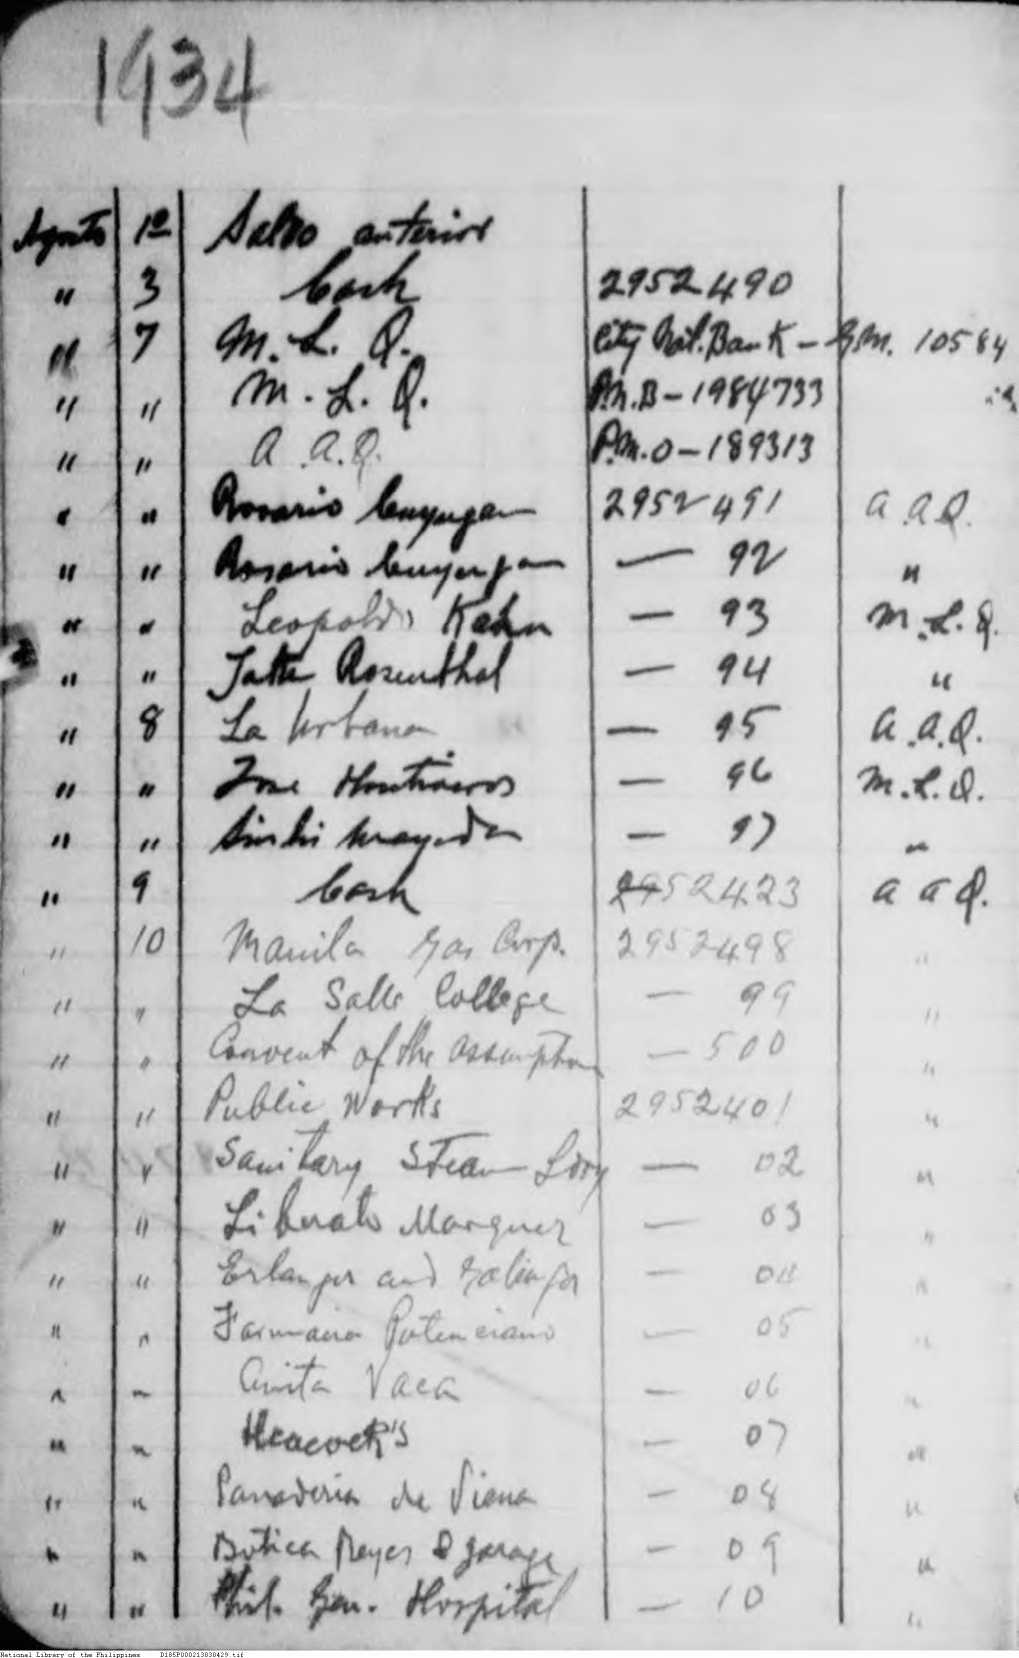 1934
Agosto 1º Saldo anterior
" 3 Cash 2952490
" 7 M. L. Q. City Nat. Bank - G.M. 10584
" " M. L. Q. P.N.B - 1984733
" " A. A. Q. P.M.O - 189313
" " Rosario Cuyugan 2952491 A. A. Q.
" " Rosario Cuyugan — 92 "
" " Leopoldo Kahn — 93 M. L. Q.
" " Rosenthal — 94 "
" 8 La Urbana — 95 A. A. Q.
" " Jose — 96 M. L. Q.
" " — 97 "
" 9 Cash 2952423 A A Q.
" 10 Manila Gas Corp. 2952498 "
" " La Salle College — 99 "
" " Convent of the Assumption — 500 "
" " Public Works 2952401 "
" " Sanitary Steam Ldry — 02 "
" " Liberato Marquez — 03 "
" " Erlanger and Galinger — 04 "
" " Farmacia Potenciano — 05 "
" " Anita Vaca — 06 "
" " Heacock's — 07 "
" " Panaderia de Viana — 08 "
" " Botica Reyes & garage — 09 "
" " Phil. Gen. Hospital — 10 "
National Library of the Philippines D185P000213838429.tif